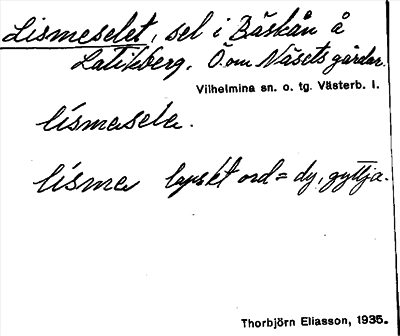 Lismeselet, sel i Bäskån å
Latikberg. Ö. om Näsets gårdar.
Vilhelmina sn. o. tg. Västerb. l.
lismasela.
lisma lapskt ord = dy, gyttja.
Thorbjörn Eliasson, 1935.